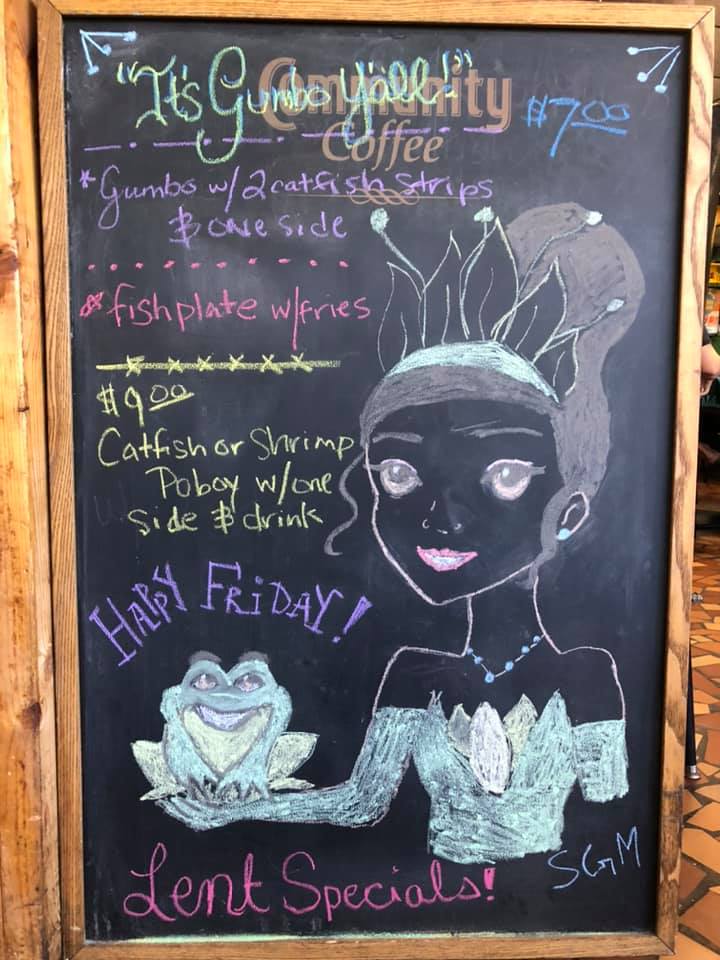 "It's Gumbo Y'all!"
Community
Coffee
$7.00
* Gumbo w/2 catfish Strips
& one side
* fish plate w/fries
$9.00
Catfish or Shrimp
Poboy w/one
side & drink
HAPPY FRiDAY!
Lent Specials!
SGM